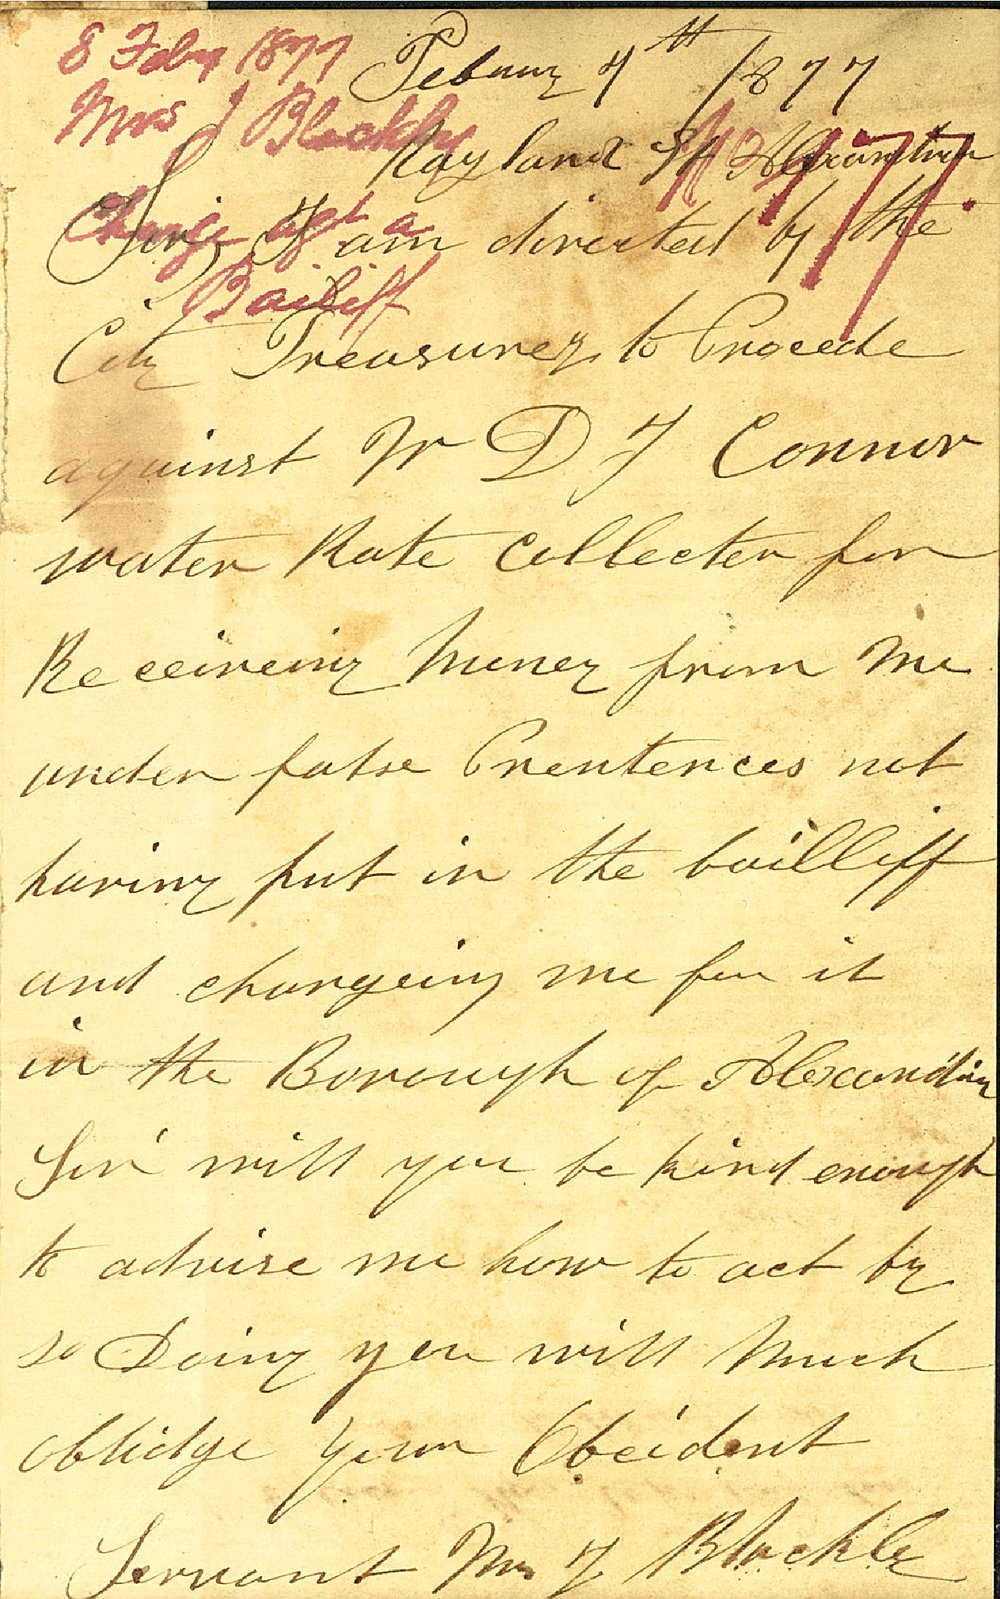 8 Feby 1877
Mrs J Blackly
Charge agst a
Bailiff
No 177.
Febuary 7th 1877
Rayland St Alexandria
Sir, I am directed by the
City Treasurey to Procede
against W D J Connor
water Rate Collecter for
Receiveing Money from me
under false Prentences not
having put in the bailliff
and chargeing me for it
in the Borough of Alexandria
Sir will you be kind enough
to advise me how to act by
so Doing you will Much
oblidge your Obeident
Servant Mrs J Blackle